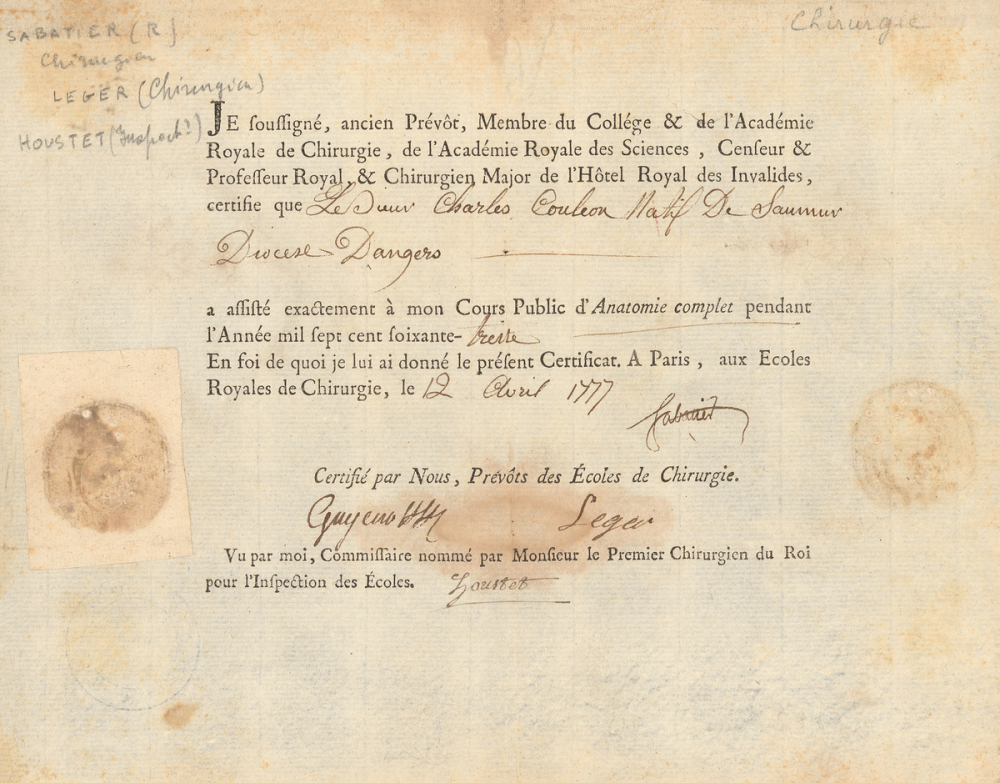 SABATIER (R)
Chirurgien
LEGER (Chirurgien)
HOUSTET (Inspect?)
Chirurgie
JE souſſigné, ancien Prévôt, Membre du Collége & de l'Académie
Royale de Chirurgie, de l'Académie Royale des Sciences, Cenſeur &
Profeſſeur Royal, & Chirurgien Major de l'Hôtel Royal des Invalides,
certifie que Le Sieur Charles Couleon Natif De Saumur
Diocese Dangers
a aſſiſté exactement à mon Cours Public d'Anatomie complet pendant
l'Année mil ſept cent ſoixante-treize
En foi de quoi je lui ai donné le préſent Certificat. A Paris, aux Ecoles
Royales de Chirurgie, le 12 Avril 1777
Sabatier
Certifié par Nous, Prévôts des Écoles de Chirurgie.
Leger
Vu par moi, Commiſſaire nommé par Monſieur le Premier Chirurgien du Roi
pour l'Inſpection des Écoles. Houstet